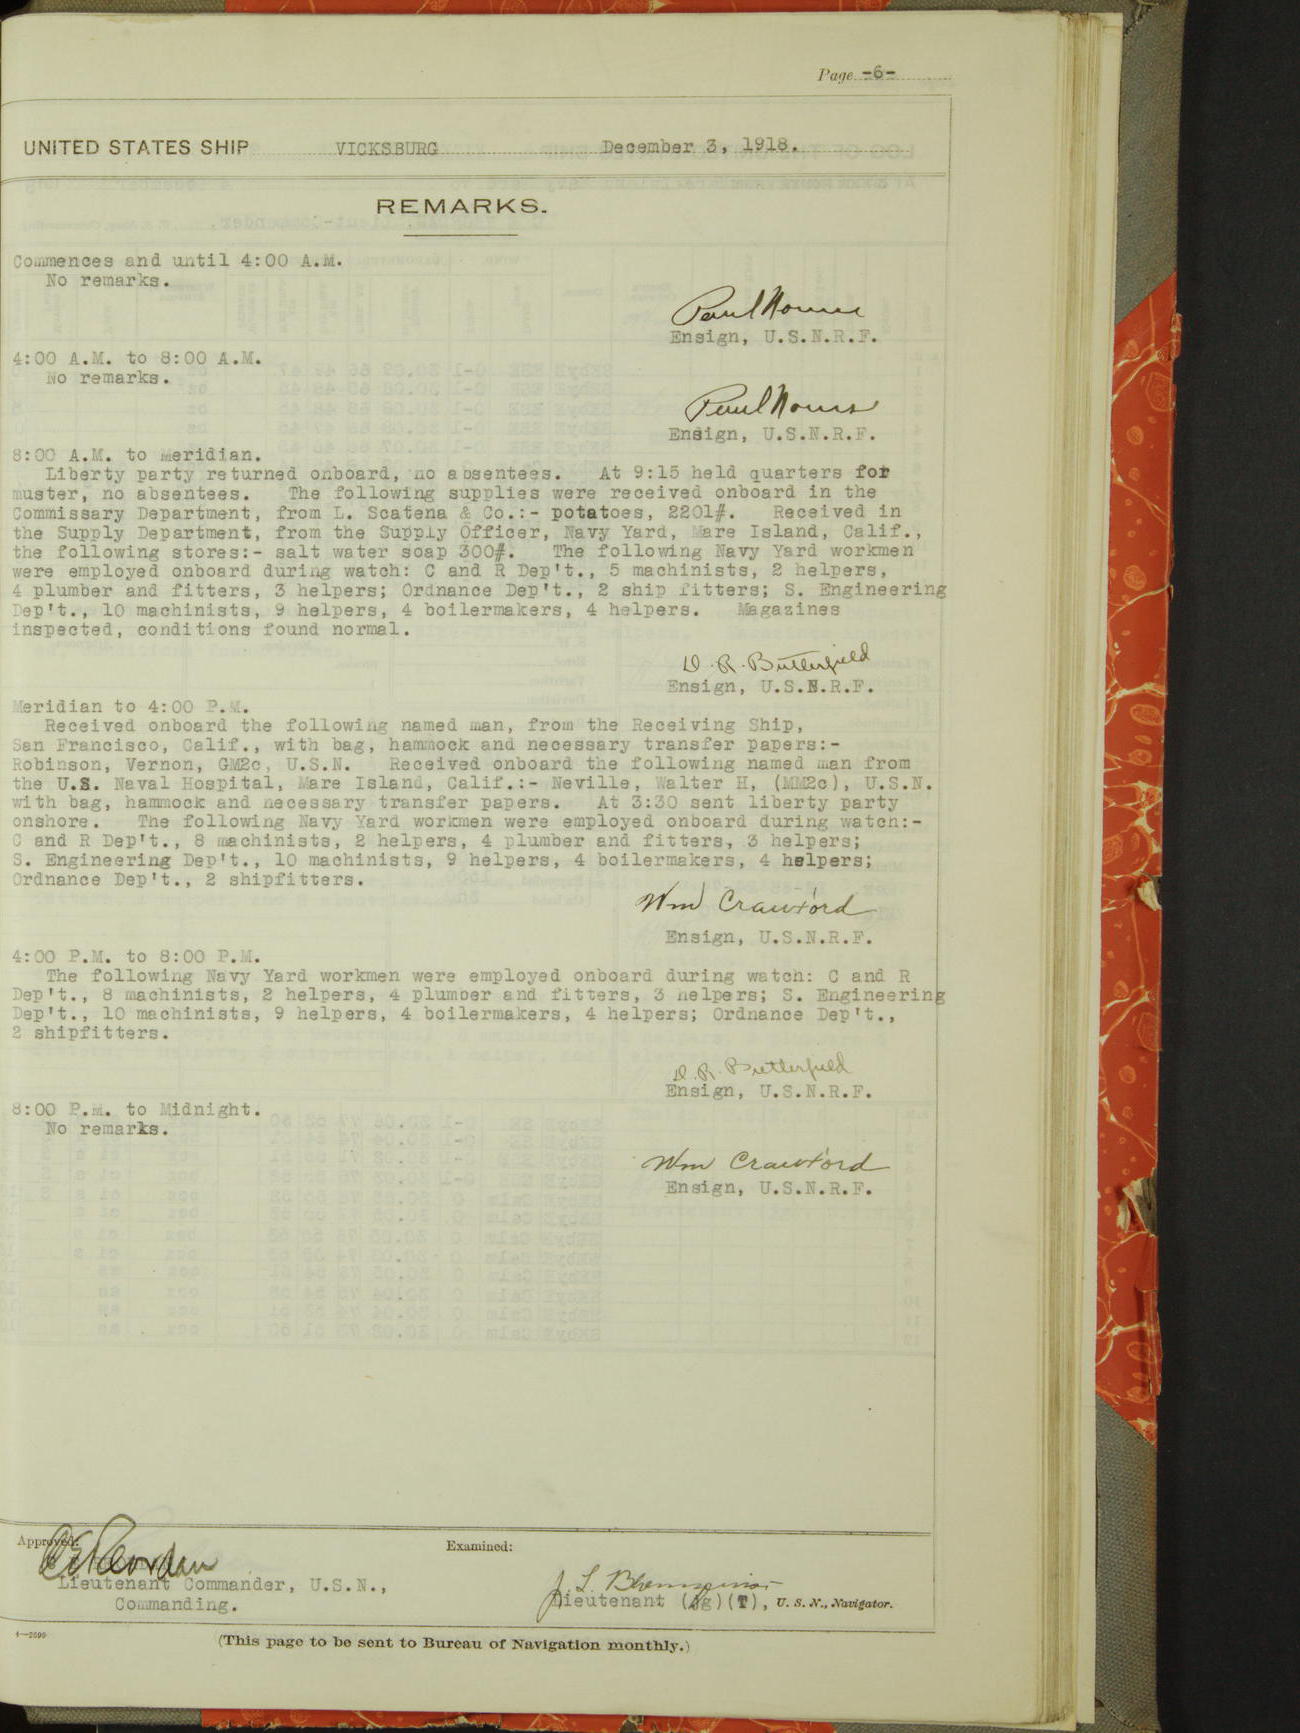 Page -6-
UNITED STATES SHIP VICKSBURG December 3, 1918.
REMARKS.
Commences and until 4:00 A.M.
No remarks.
Ensign, U.S.N.R.F.
4:00 A.M. to 8:00 A.M.
No remarks.
Ensign, U.S.N.R.F.
8:00 A.M. to meridian.
Liberty party returned onboard, no absentees. At 9:15 held quarters for
muster, no absentees. The following supplies were received onboard in the
Commissary Department, from L. Scatena & Co.:- potatoes, 2201#. Received in
the Supply Department, from the Supply Officer, Navy Yard, Mare Island, Calif.,
the following stores:- salt water soap 300#. The following Navy Yard workmen
were employed onboard during watch: C and R Dep't., 5 machinists, 2 helpers,
4 plumber and fitters, 3 helpers; Ordnance Dep't., 2 ship fitters; S. Engineering
Dep't., 10 machinists, 9 helpers, 4 boilermakers, 4 helpers. Magazines
inspected, conditions found normal.
D. R. Butterfield
Ensign, U.S.N.R.F.
Meridian to 4:00 P.M.
Received onboard the following named man, from the Receiving Ship,
San Francisco, Calif., with bag, hammock and necessary transfer papers:-
Robinson, Vernon, GM2c, U.S.N. Received onboard the following named man from
the U.S. Naval Hospital, Mare Island, Calif.:- Neville, Walter H, (MM2c), U.S.N.
with bag, hammock and necessary transfer papers. At 3:30 sent liberty party
onshore. The following Navy Yard workmen were employed onboard during watch:-
C and R Dep't., 8 machinists, 2 helpers, 4 plumber and fitters, 3 helpers;
S. Engineering Dep't., 10 machinists, 9 helpers, 4 boilermakers, 4 helpers;
Ordnance Dep't., 2 shipfitters.
Wm Crawford
Ensign, U.S.N.R.F.
4:00 P.M. to 8:00 P.M.
The following Navy Yard workmen were employed onboard during watch: C and R
Dep't., 8 machinists, 2 helpers, 4 plumber and fitters, 3 helpers; S. Engineering
Dep't., 10 machinists, 9 helpers, 4 boilermakers, 4 helpers; Ordnance Dep't.,
2 shipfitters.
D. R. Butterfield
Ensign, U.S.N.R.F.
8:00 P.M. to Midnight.
No remarks.
Wm Crawford
Ensign, U.S.N.R.F.
Approved: Examined:
Lieutenant Commander, U.S.N.,
Commanding.
Lieutenant (Jg)(T), U. S. N., Navigator.
(This page to be sent to Bureau of Navigation monthly.)